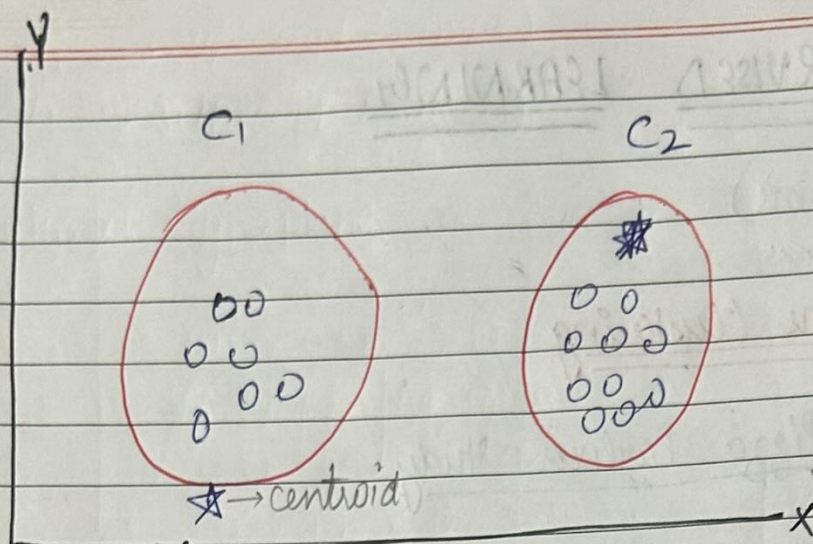 Y
C1
C2
→centroid
X